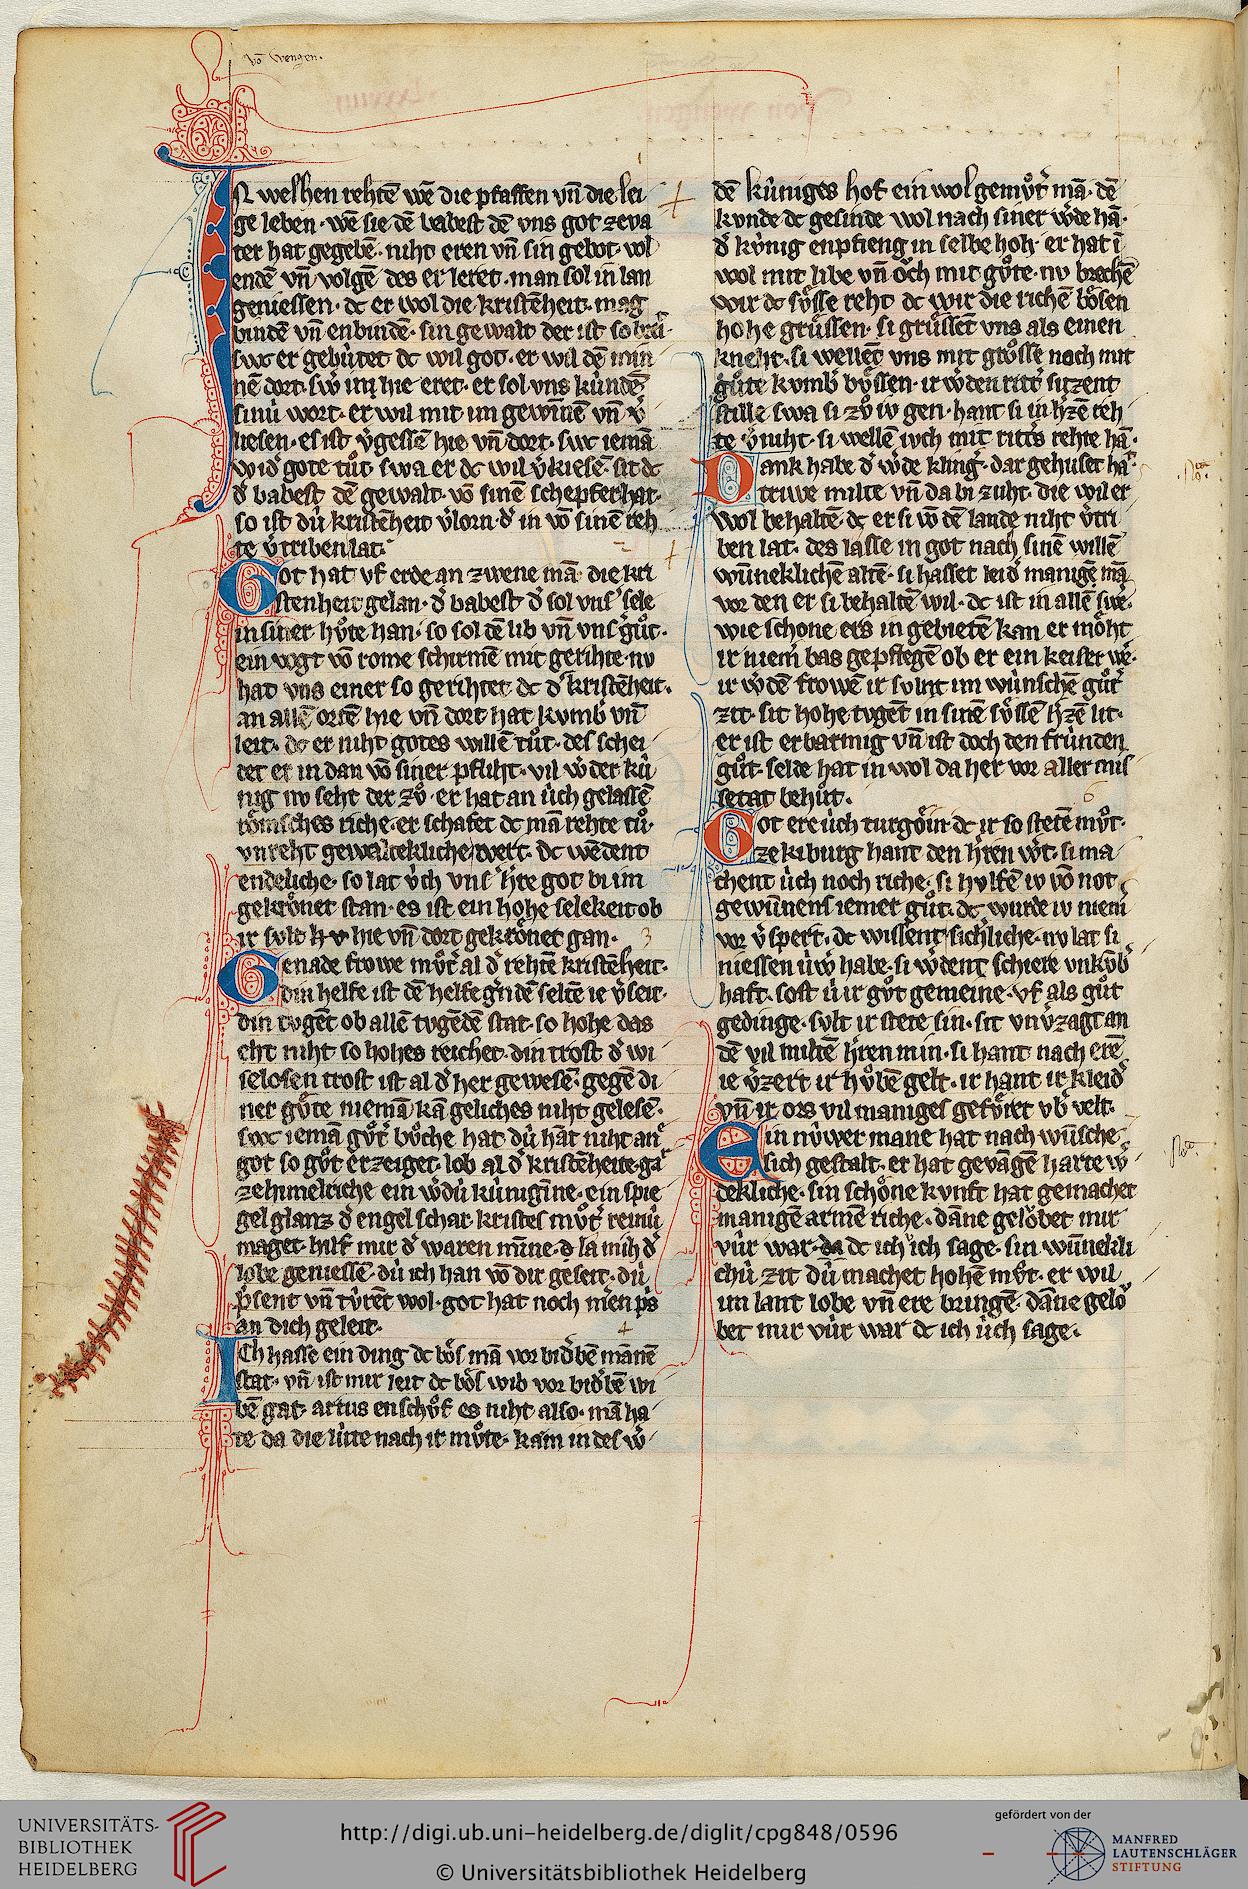 vō wengen.
IN welhen rehtē wē die pfaffen vn̄ die lei
ge leben· wē sie dē babest dē vns got zeva
ter hat gegebē· niht eren vn̄ sin gebot· wol
endē vn̄ volgē des er leret· man sol in lan
geniessen· dc er wol die kristēheit· mag
bindē vn̄ enbindē· sin gewalt der ist so
swc er gebùtet dc wil got· er wil dē min
nē dort· swˢ im hie eret· er sol vns kùndē
sinù wort· er wil mit im gewīnē vn̄ vˢ
liesen· es ist vˢgessē hie vn̄ dort· swc iemā
widˢ gote tůt· swa er dc wil vˢkiesē· sit dc
dˢ babest dē gewalt· vō sinē schepfer hat·
so ist dù kristēheit vˢlorn· dˢ in vō sinē reh
te vˢtriben lat·
Got hat vf erde an zwene mā· die kri
stenheit gelan· dˢ babest dˢ sol vnsˢ sele
in siner hůte han· so sol dē lib vn̄ vnsˢ gůt·
ein vogt vō rome schirmē mit gerihte· nv
hat vns einer so gerihtet dc dˢ kristēheit·
an allē ortē hie vn̄ dort hat kvmbˢ vn̄
leit· dc er niht gotes willē tůt· des schei
det er in dan vō siner pfliht· vil wˢder kù
nig nv seht der zů· er hat an ùch gelassē
rômsches riche· er schafet dc mā rehte tů·
vnreht gewaltekliche wert· dc wēdent
endeliche· so lat v̀ch vnsˢ hˢre got bi im
gekrônet stan· es ist ein hohe selekeit ob
ir svlt hie vn̄ dort gekrônet gan· 3
Genade frowe můtˢ al dˢ rehtē kristēheit·
din helfe ist dē helfe gˢndē seltē ie vˢseit·
din tvgēt ob allē tvgēdē stat· so hohe das
eht niht so hohes reichet· din trost dˢ wi
selosen trost ist al dˢ her gewesē· gegē di
ner gůte niemā kā geliches niht gelesē·
swc iemā gůtˢ bůche hat dù hāt niht anˢ
got so gůt erzeiget· lob al dˢ kristēheite· gāˢ
ze himelriche ein wˢdù kùnigīne· ein spie
gel glanz dˢ engel schar· kristes mů̊tˢ reinù
maget· hilf mir dˢ waren mīne· dˢ la mih dˢ
lobe geniessē· dù ich han vō dir geseit· dù
pˢsent vn̄ tv̀ret wol· got hat noch mˢen pˢs
an dich geleit· 4
ICh hasse ein ding dc bôs mā vor bidˢbē mānē
stat· vn̄ ist mir leit dc bôs wib vor bidˢbē wi
bē gat· artus enschůf es niht also· mā ha
te da die lùte nach ir můte· kam in des wˢ
dē kùniges hof ein wol gemůtˢ mā· dē
kvnde dc gesinde wol nach siner wˢde hā·
dˢ kv̀nig enpfieng in selbe hoh· er hat ī
wol mit libe vn̄ ôch mit gůte· nv brechē
wir dc sůsse reht dc wir die richē bôsen
hohe grůssen· si grůssēt vns als einen
kneht· si wellēt vns mit grôsse noch mit
gůte kvmbˢ bůssen· ir wˢden rittˢ sitzent
stille swa si zů iv gen· hant si in hˢzē reh
te vˢniht· si wellē ivch mit rittˢs rehte hā·
Dank habe dˢ wˢde klingˢ· dar gehuset hāˢ
triwe milte vn̄ da bi zuht· die wil er
wol behaltē· dc er si vō dē lande niht vˢtri
ben lat· des lasse in got nach sinē willē
wūneklichē altē· si hasset leidˢ manigē mā
vor den er si behaltē wil· dc ist in allē swēˢ·
wie schone ers in gebietē kan er môht
ir niemˢ bas gepflegē ob er ein keiser wēˢ·
ir wˢdē frowē ir svlnt im wùnschē gůtˢ
zit· sit hohe tvgēt in sinē sůssē hˢzē lit·
er ist erbarmig vn̄ ist doch den frùnden
gůt· selde hat in wol da her vor aller mis
setat behůt· 6
Got ere ùch turgôin dc ir so stetē můt·
ze kiburg hant den hˢren wˢt· si ma
chent ùch noch riche· si hvlfē iv vō not
gewūnens iemer gůt· dc wurde iv niem
vor vˢspert· dc wissent sichˢliche· nv lat si
niessen ùwˢ habe· si wˢdent schiere vnkv̄bˢ
haft· sost ùir gůt gemeine· vf als gůt
gedinge· svlt ir stete sin· sit vnvˢzagt an
dē vil miltē hˢren min· si hant nach erē
ie vˢzert ir hůbē gelt· ir hant ir kleidˢ
vn̄ ir ors vil maniges gefůret vbˢ velt·
Ein nv̀wer mane hat nach wūsche
sich gestalt· er hat gevāgē harte wˢ
dekliche· sin schône kvnft hat gemachet
manigē armē riche· dāne gelôbet mir
vùr war dc ich ich sage· sin wūnekli
chù zit dù machet hohē můt· er wil
im lant lobe vn̄ ere bringē· dāne gelô
bet mir vùr war dc ich ùch sage·
UNIVERSITÄTS-
BIBLIOTHEK
HEIDELBERG
http://digi.ub.uni-heidelberg.de/diglit/cpg848/0596
© Universitätsbibliothek Heidelberg
gefördert von der
MANFRED
LAUTENSCHLÄGER
STIFTUNG